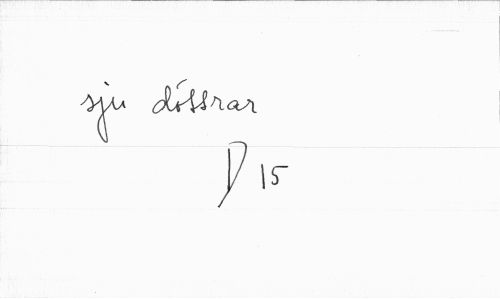 sju dóssrar
D 15